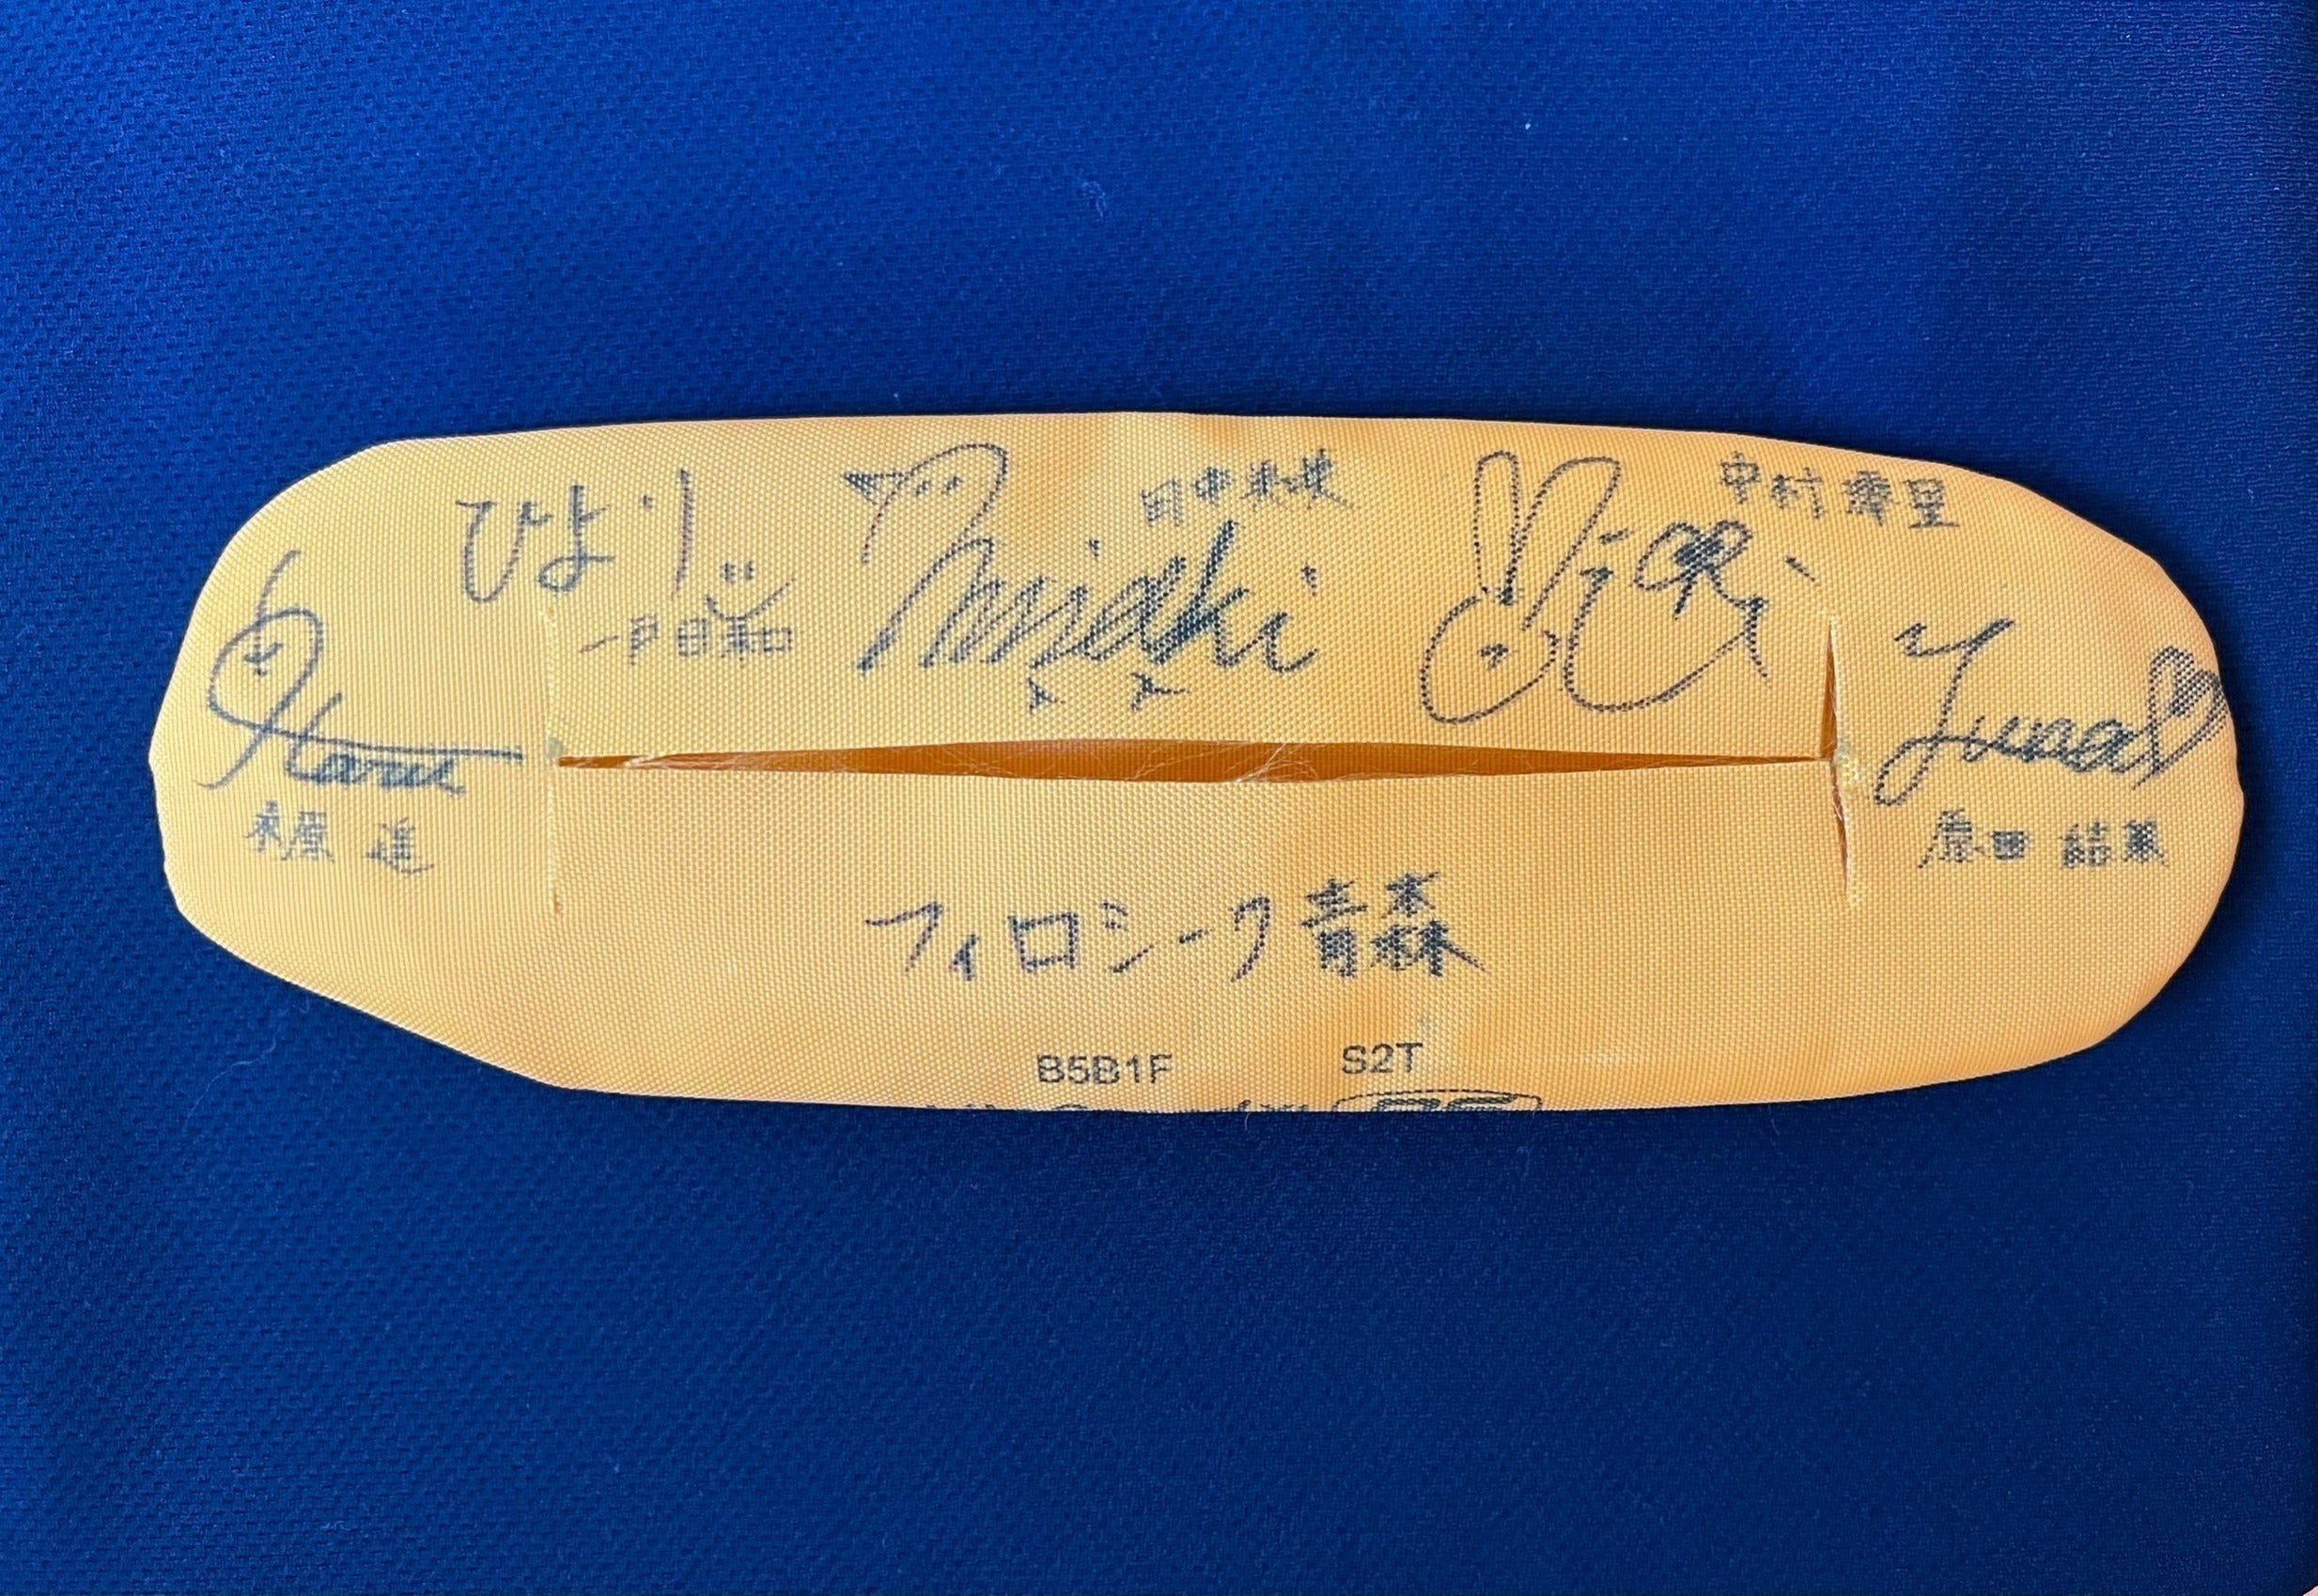 ひより
一戸日和
田中未來
Misaki
中村雫里
Haru
桑原 遥
Yuna
原田 結菜
フィロシーク青森
B5B1F S2T